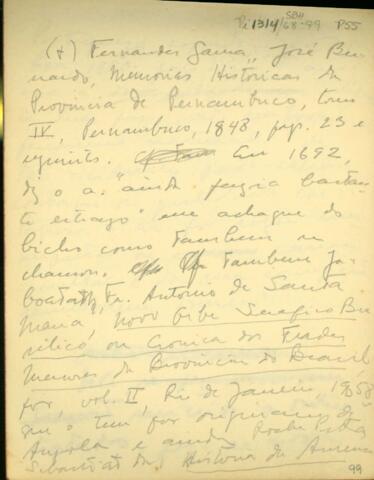 Pi 13/4/68-99 P55
SBH
(+) Fernandes Gama, José Ber-
nardo, Memorias Históricas da
Provincia de Pernambuco, tomo
IV, Pernambuco, 1848, pag. 23 e
seguintes. Em 1692,
diz o a. "ainda fazia bastan-
te estrago" me achaque do
bicho como tambem se
chamou. Tambem Ja-
boatão, Fr. Antonio de Santa
Maria, Novo Orbe Serafico Bra-
silico ou Cronica dos Frades
Menores da Provincia do Brasil,
vol. II, Rio de Janeiro 1858
que o tem por originario de
Angola e ainda Rocha Pita
Sebastião da, Historia da America
99